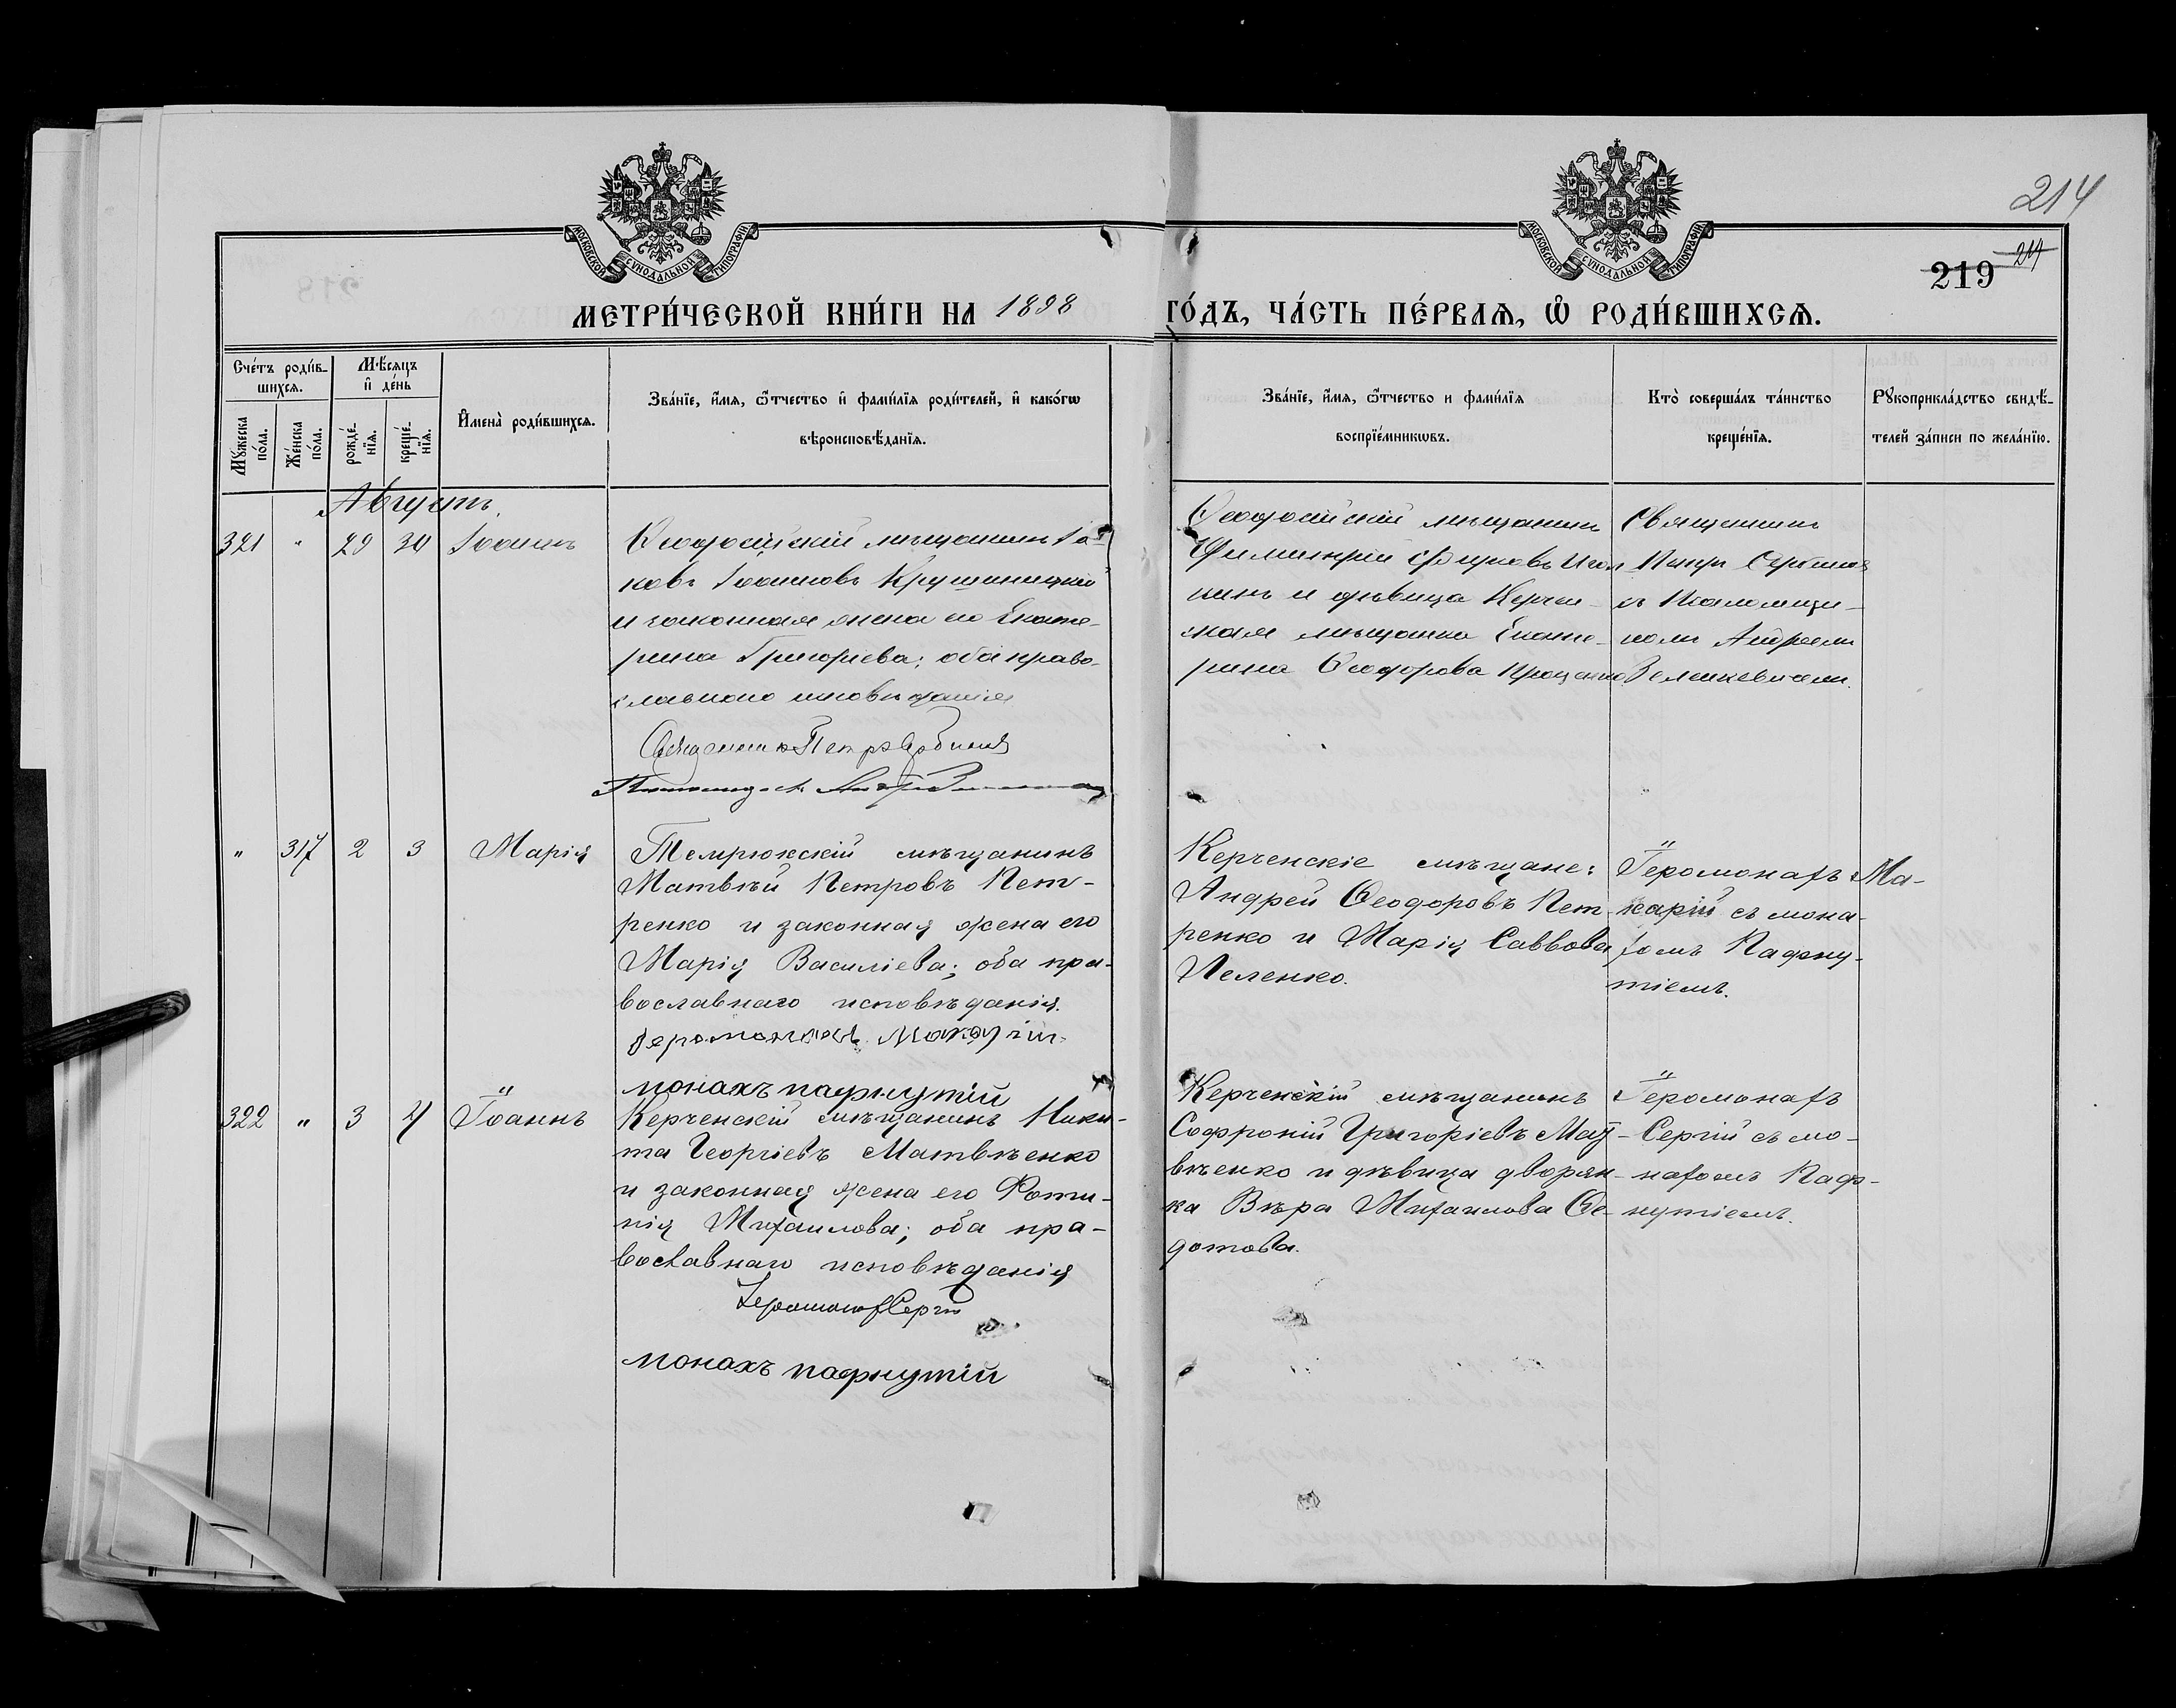 214
219 214
МОСКОВСКОЙ СѴНОДАЛЬНОЙ ТИПОГРАФІИ
МОСКОВСКОЙ СѴНОДАЛЬНОЙ ТИПОГРАФІИ
МЕТРИ́ЧЕСКОЙ КНИ́ГИ НА 1898 ГО́ДЪ, ЧА́СТЬ ПЕ́РВАѦ, Ѡ҆ РОДИ́ВШИХСѦ.
Сче́тъ роди́в-
шихсѧ.
Мꙋ́жеска по́ла.
Же́нска по́ла.
Мѣ́сѧцъ
и҆ де́нь
рожде́-
нїѧ.
креще́-
нїѧ.
И҆мена̀ роди́вшихсѧ.
Зва́нїе, и҆́мѧ, ѻ҆́тчество и҆ фами́лїѧ роди́телей, и҆ како́гѡ
вѣроисповѣ́данїѧ.
Зва́нїе, и҆́мѧ, ѻ҆́тчество и фами́лїѧ
воспрїе́мникѡвъ.
Кто̀ соверша́лъ та́инство
креще́нїѧ.
Рꙋкоприкла́дство свидѣ́-
телей за́писи по жела́нїю.
Августъ.
321 " 29 30 Іоаннъ
Ѳеодосійскій мѣщанинъ Іа-
ковъ Іоанновъ Крушиницкій
и законная жена его Екате-
рина Григоріева; оба право-
славнаго исповѣданія
Священникъ Петръ Сербиновъ
Ѳеодосійскій мѣщанинъ
Димитрій
и дѣвица Керчен-
ская мѣщанка Екате-
рина Ѳеодорова
Священникъ
Петръ Сербиновъ
съ Псаломщи-
комъ Андреемъ
Зеленкевичемъ.
" 317 2 3 Марія
Темрюкскій мѣщанинъ
Матвѣй Петровъ Пет-
ренко и законная жена его
Марія Василіева; оба пра-
вославнаго исповѣданія.
Іеромонахъ Макарій
монахъ пафнутій
Керченскіе мѣщане:
Андрей Ѳеодоровъ Пет-
ренко и Марія Саввова
Леленко.
Іеромонахъ Ма-
карій съ мона-
хомъ Пафну-
тіемъ.
322 " 3 4 Іоаннъ
Керченскій мѣщанинъ Ники-
та Георгіевъ Матвѣенко
и законная жена его Фоти-
нія Михаилова; оба пра-
вославнаго исповѣданія
Іеромонахъ Сергій
монахъ пафнутій
Керченскій мѣщанинъ
Софроній Григоріевъ Мат-
вѣенко и дѣвица дворян-
ка Вѣра Михаилова Ѳе-
дотова.
Іеромонахъ
Сергій съ мо-
нахомъ Паф-
нутіемъ.